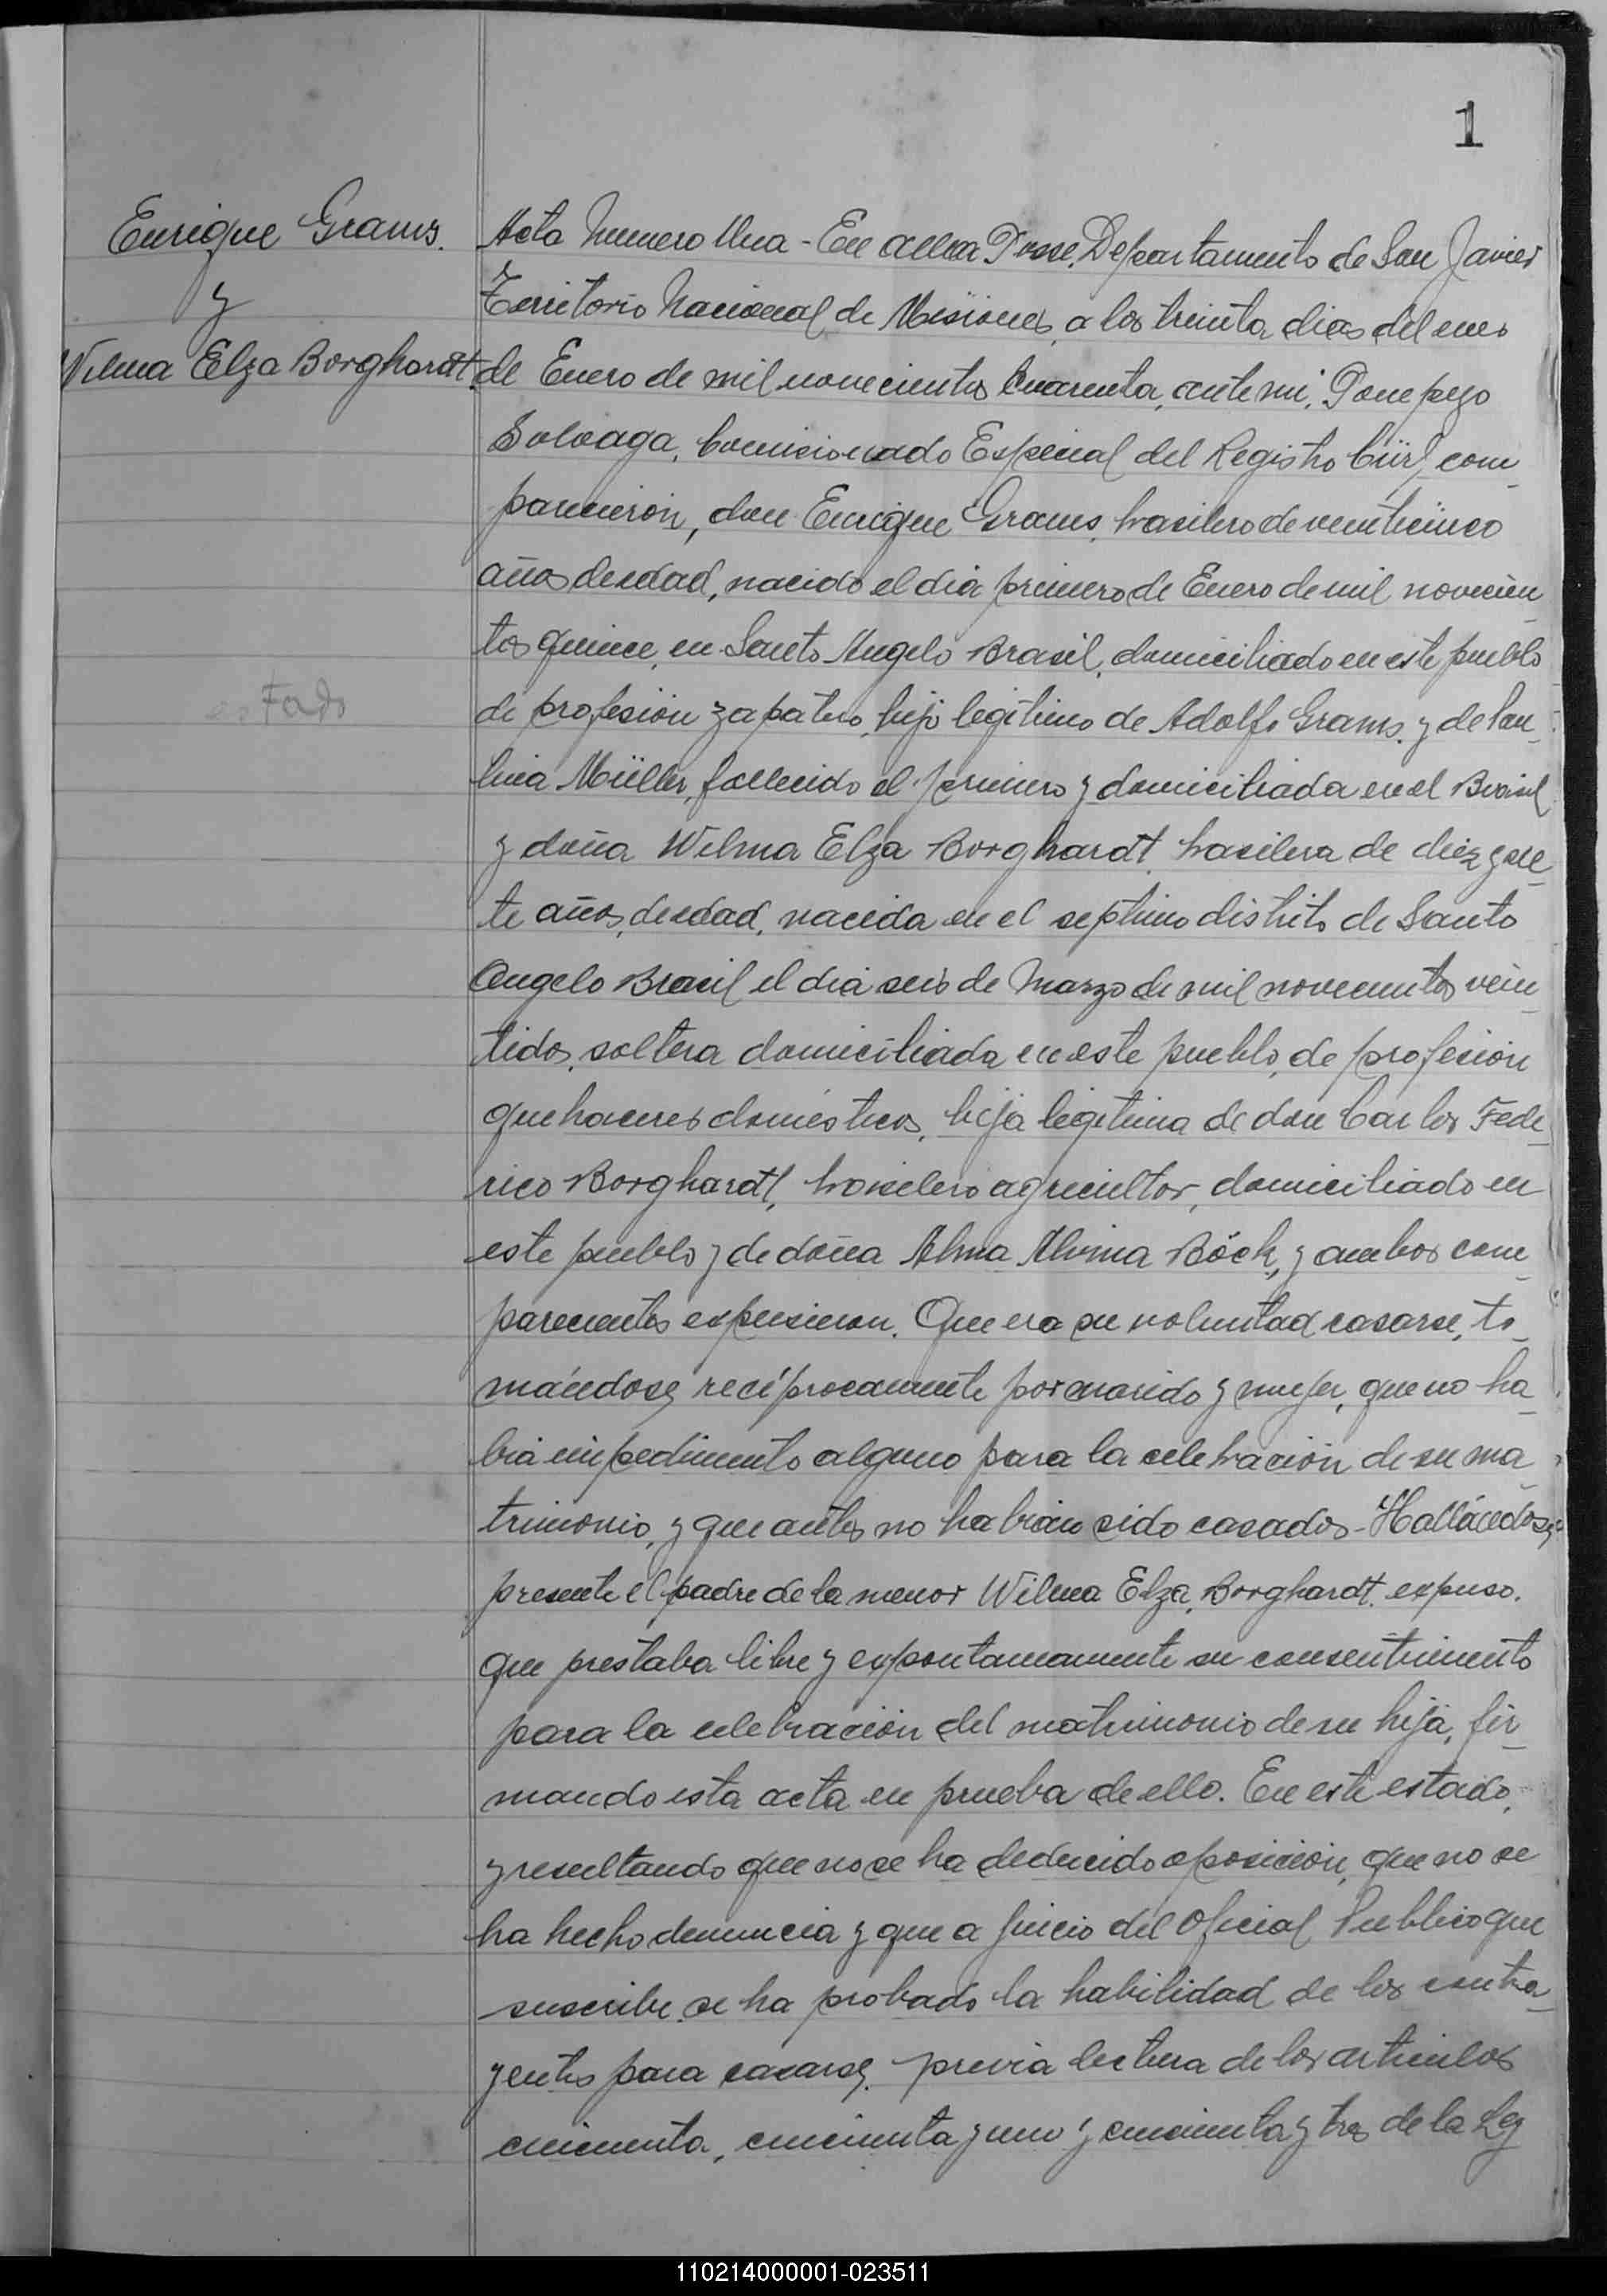 1
Enrique Grams.
y
Wilma Elza Borghardt.
estado
Acta Numero Una - En Alba Posse, Departamento de San Javier
Territorio Nacional de Misiones, a los treinta dias del mes
de Enero de mil novecientos cuarenta, ante mi, Pompeyo
Soloaga, Comisionado Especial del Registro Civil, com_
parecieron, don Enrique Grams, brasilero de veinticinco
años de edad, nacido el dia primero de Enero de mil novecien_
tos quince, en Santo Angelo Brasil, domiciliado en este pueblo
de profesión zapatero, hijo legítimo de Adolfo Grams, y de Pau_
lina Müller, fallecido el primero y domiciliada en el Brasil
y doña Wilma Elza Borghardt, brasilera de diez y sie_
te años, de edad, nacida en el septimo distrito de Santo
Angelo Brasil el dia seis de Marzo de mil novecientos vein_
tidos, soltera domiciliada en este pueblo, de profesión
quehaceres domésticos, hija legitima de don Carlos Fede_
rico Borghardt, brasilero agricultor, domiciliado en
este pueblo y de doña Alma Alvina Böck, y ambos com_
parecientes expusieron. Que era su voluntad casarse, to_
mándose, recíprocamente por marido y mujer, que no ha_
bia impedimento alguno para la celebración de su ma_
trimonio, y que antes no habian sido casados - Hallándose
presente el padre de la menor Wilma Elza, Borghardt. expuso.
que prestaba libre y expontaneamente su consentimiento
para la celebración del matrimonio de su hija, fir_
mando esta acta en prueba de ello. En este estado,
y resultando que no se ha deducido oposición, que no se
ha hecho denuncia y que a juicio del Oficial Publico que
suscribe, se ha probado la habilidad de los contra_
yentes para casarse, previa lectura de los articulos
cincuenta, cincuenta y uno y cincuenta y tres de la Ley
110214000001-023511